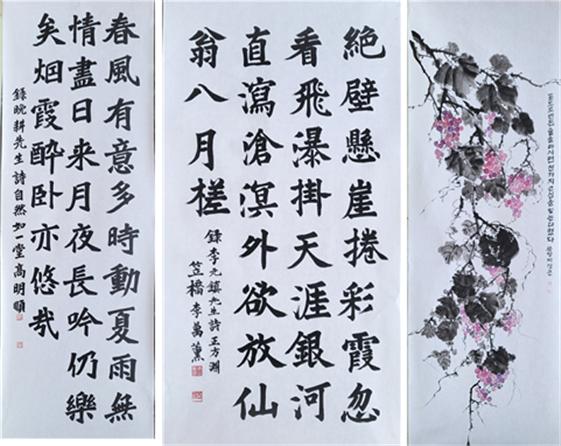 春風有意多時動夏雨無
情盡日来月夜長吟仍樂
矣烟霞醉卧亦悠哉
錄晩耕先生詩自然如一堂高明順
絶壁懸崖捲彩霞忽
看飛瀑掛天涯銀河
直瀉滄溟外欲放仙
翁八月槎
錄李元鎮先生詩正方淵
笠橋李萬薰